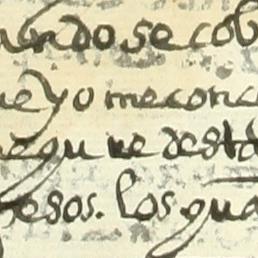 ando se cob
e yo me conc
egu re desta
esos. los qua